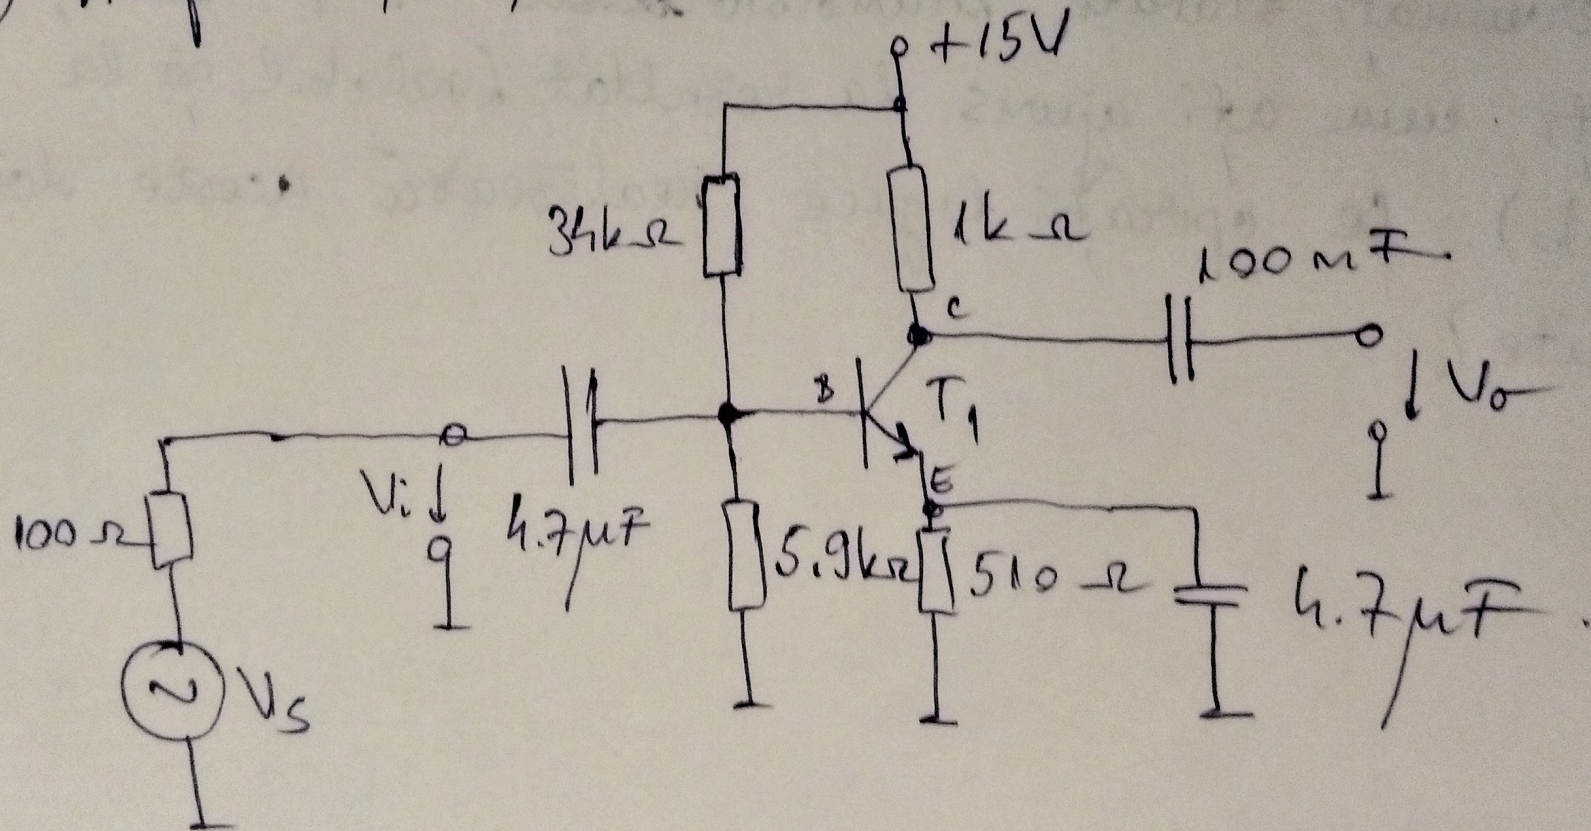 +15V
34kΩ
1kΩ
100nF
C
B
T1
Vo
E
Vi
4.7µF
100Ω
5.9kΩ
510Ω
4.7µF
VS